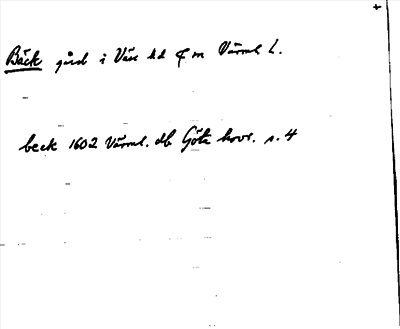 Bäck gård i Väse hd o m Värml L.
beck 1602 Värml. db Göta hovr. s. 4